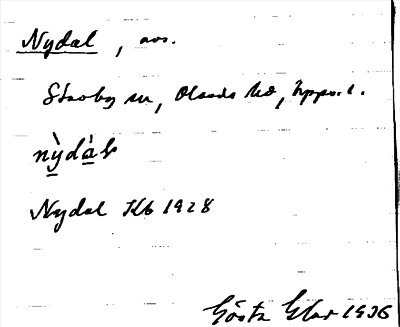 Nydal, avs.
Skoby sn, Olands hd, Upps. l.
nỳdàḷ
Nydal Hb 1928
Gösta Eldar 1936